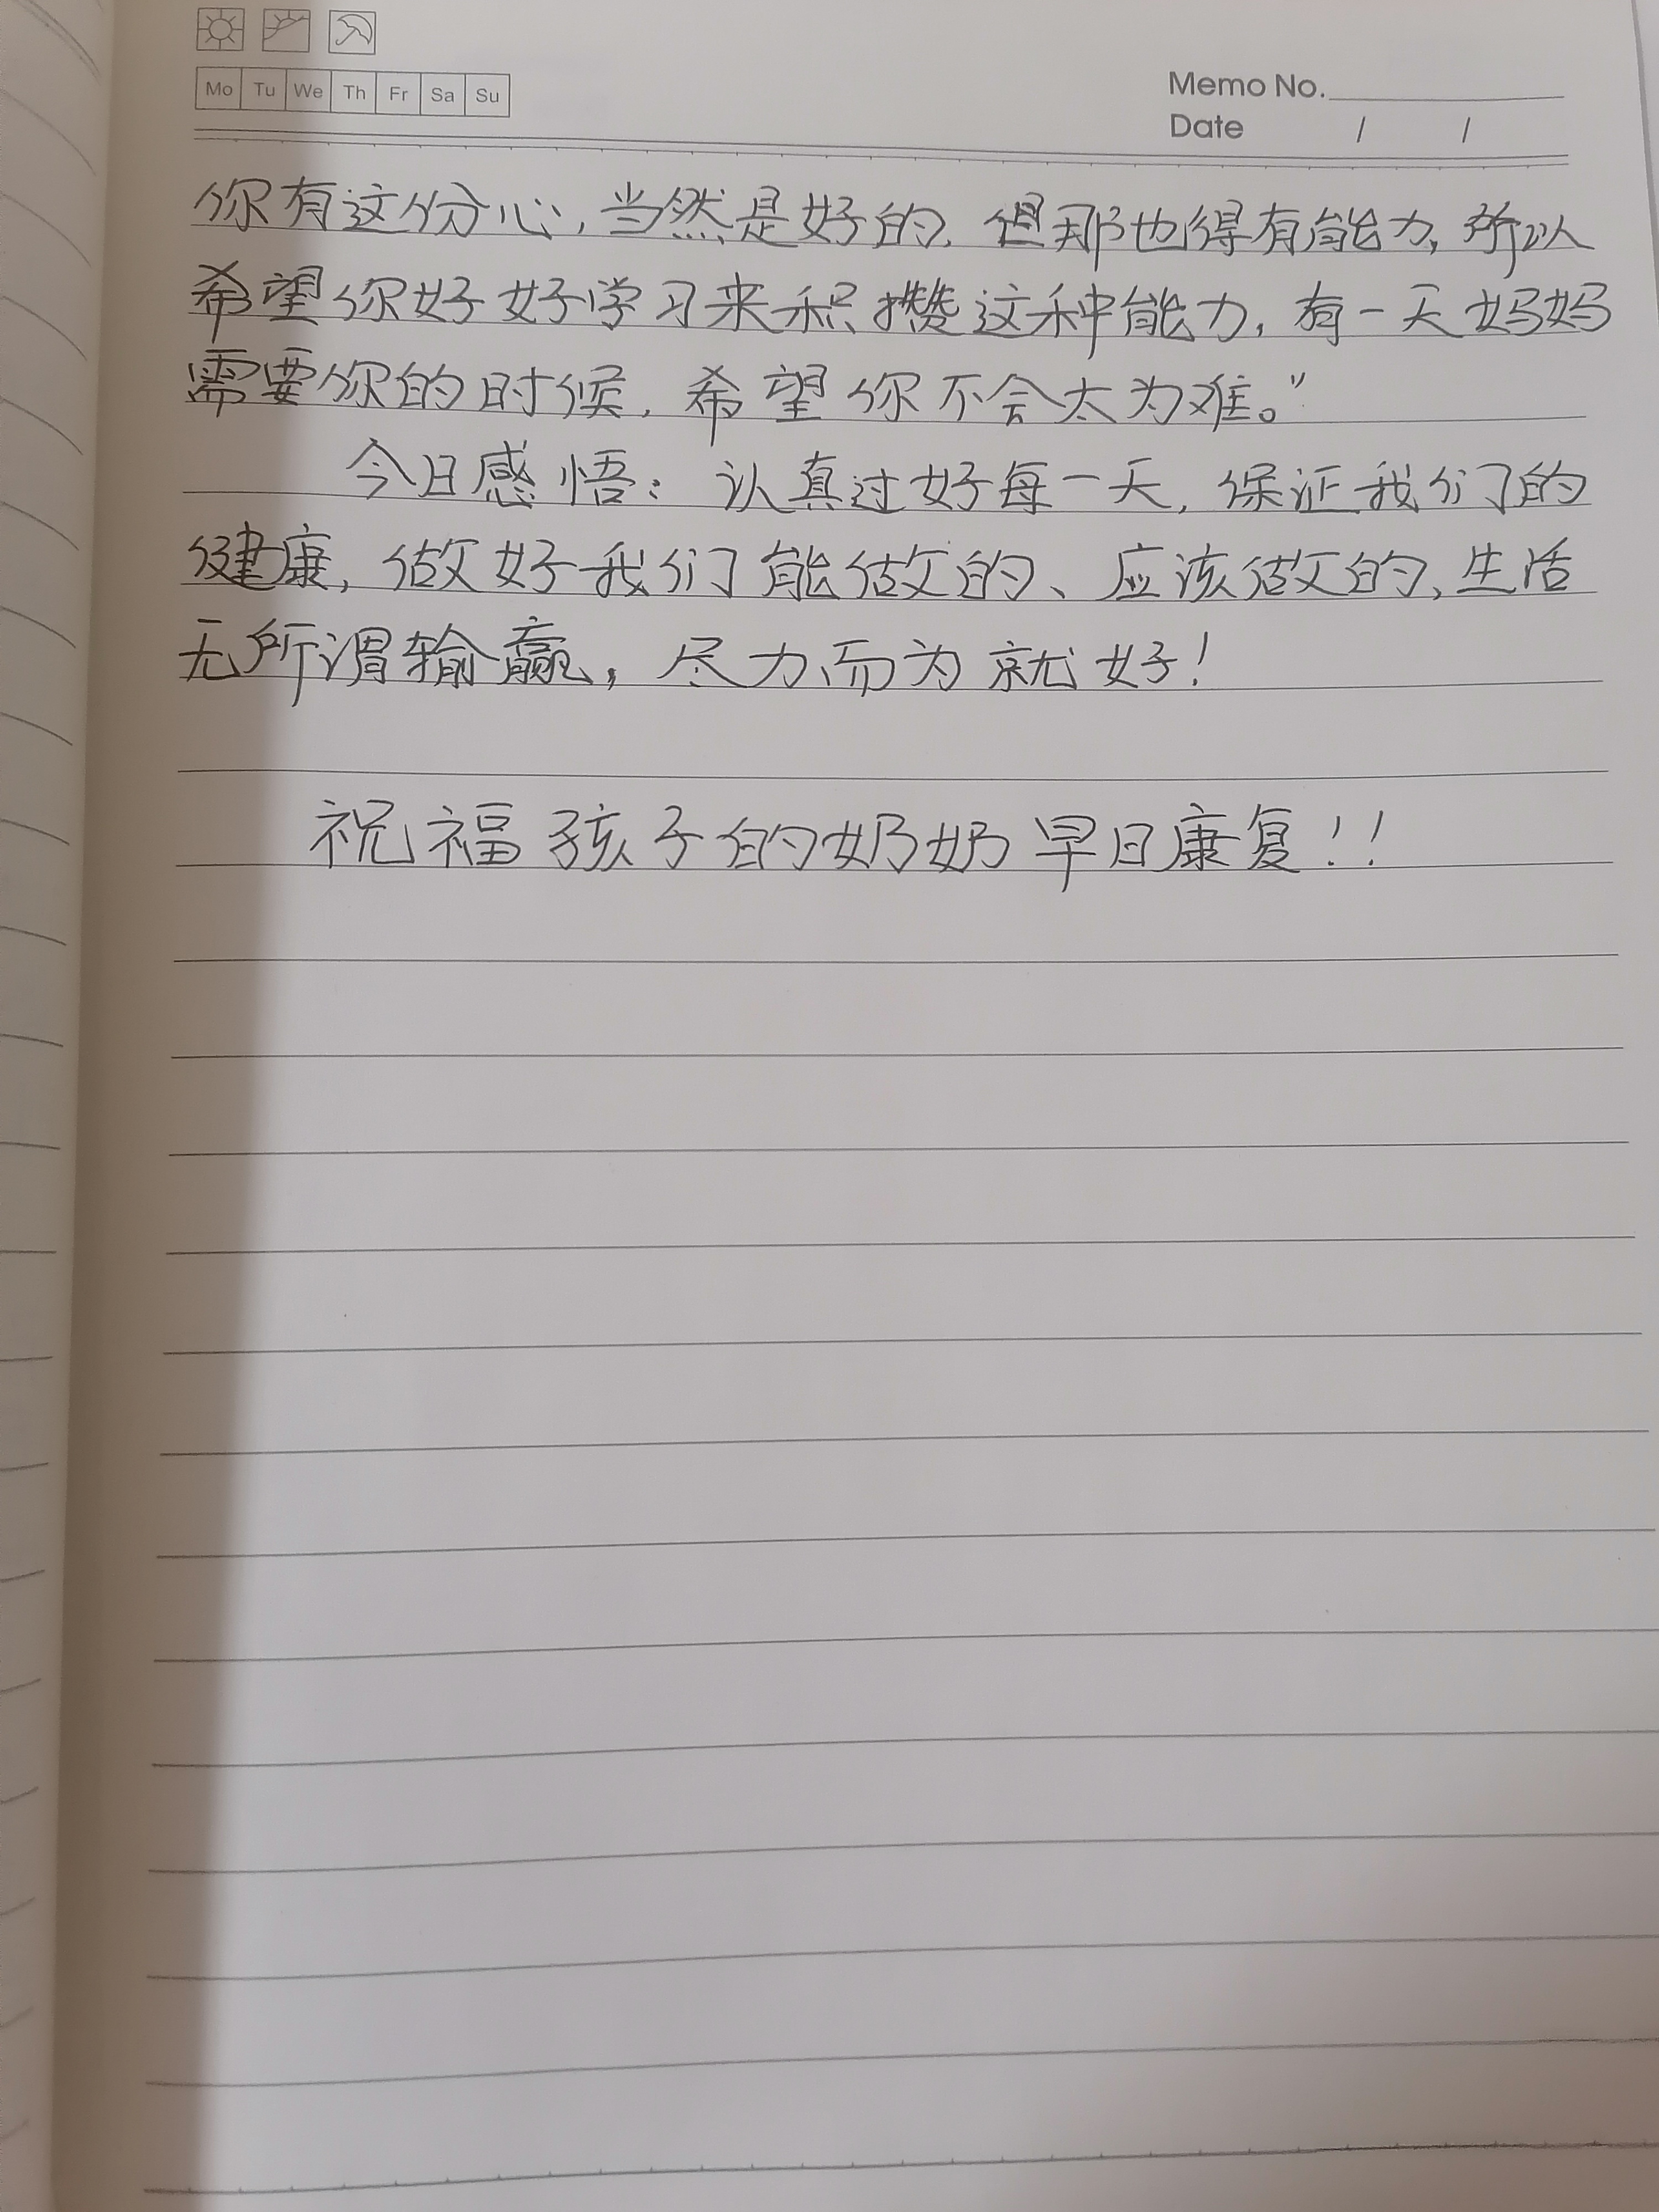 Mo Tu We Th Fr Sa Su
Memo No.
Date / /
你有这份心，当然是好的，但那也得有能力，所以
希望你好好学习来积攒这种能力，有一天妈妈
需要你的时候，希望你不会太为难。”
今日感悟：认真过好每一天，保证我们的
健康，做好我们能做的、应该做的，生活
无所谓输赢，尽力而为就好！
祝福孩子的奶奶早日康复！！